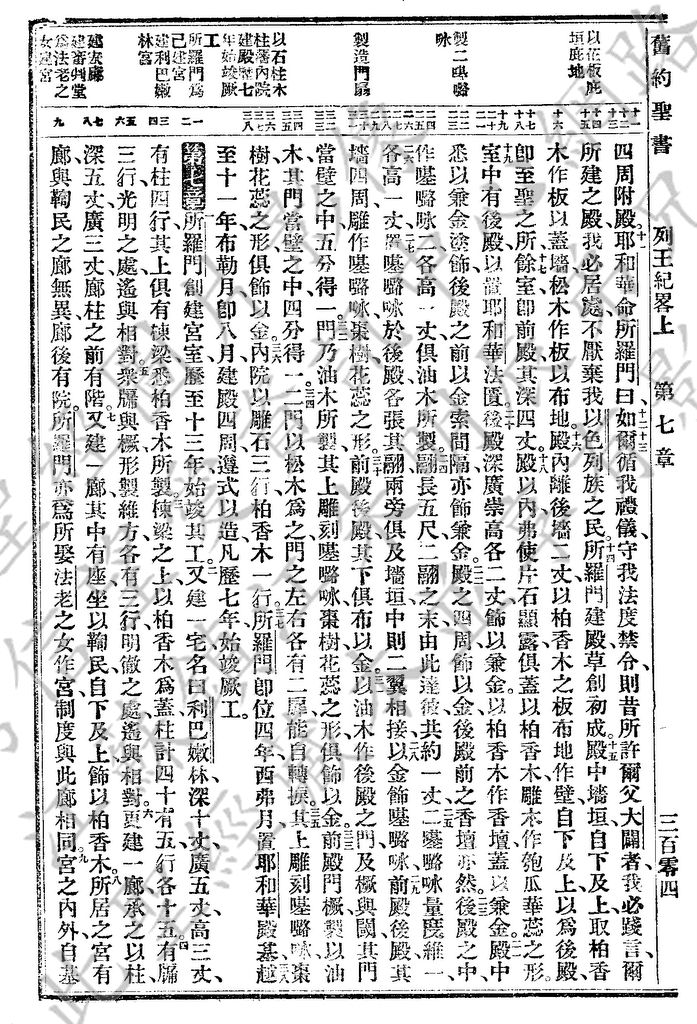 舊約聖書 列王紀畧上 第七章 三百零四
以花板庇垣庇地
製二𠼻𡀔咏
製造門扇
以石柱木柱𥫣內院
建殿歷七年始竣厥工
所羅門爲己建宮
建利巴嫩林宮
建衆廊
建審判堂
爲法老之女建宮
四周附殿耶和華命所羅門曰如爾循我禮儀守我法度禁令則昔所許爾父大闢者我必踐言爾
所建之殿我必居處不厭棄我以色列族之民所羅門建殿草創初成殿中墻垣自下及上取柏香
木作板以蓋墻松木作板以布地殿內離後墻二丈以柏香木之板布地作壁自下及上以爲後殿
卽至聖之所餘室卽前殿其深四丈殿以內弗使片石顯露俱蓋以柏香木雕木作匏瓜華蕊之形
室中有後殿以置耶和華法匱後殿深廣崇高各二丈飾以兼金以柏香木作香壇蓋以兼金殿中
悉以兼金塗飾後殿之前以金索間隔亦飾兼金殿之四周飾以金後殿前之香壇亦然後殿之中
作𠼻𡀔咏二各高一丈俱油木所製翮長五尺二翮之末由此達彼共約一丈二𠼻𡀔咏量度維一
各高一丈置𠼻𡀔咏於後殿各張其翮兩旁俱及墻垣中則二翼相接以金飾𠼻𡀔咏前殿後殿其
墻四周雕作𠼻𡀔咏棗樹花蕊之形前殿後殿其下俱布以金以油木作後殿之門及橛與闑其門
當壁之中五分得一門乃油木所製其上雕刻𠼻𡀔咏棗樹花蕊之形俱飾以金前殿門橛製以油
木其門當壁之中四分得一二門以松木爲之門之左右各有二扉能自轉捩其上雕刻𠼻𡀔咏棗
樹花蕊之形俱飾以金內院以雕石三行柏香木一行所羅門卽位四年西弗月置耶和華殿基越
至十一年布勒月卽八月建殿四周遵式以造凡歷七年始竣厥工
第七章所羅門創建宮室歷至十三年始竣其工又建一宅名曰利巴嫩林深十丈廣五丈高三丈
有柱四行其上俱有棟梁悉柏香木所製棟梁之上以柏香木爲蓋柱計四十有五行各十五有牖
三行光明之處遙與相對衆牖與橛形製維方各有三行明徹之處遙與相對更建一廊承之以柱
深五丈廣三丈廊柱之前有階又建一廊其中有座坐以鞫民自下及上飾以柏香木所居之宮有
廊與鞫民之廊無異廊後有院所羅門亦爲所娶法老之女作宮制度與此廊相同宮之內外自基